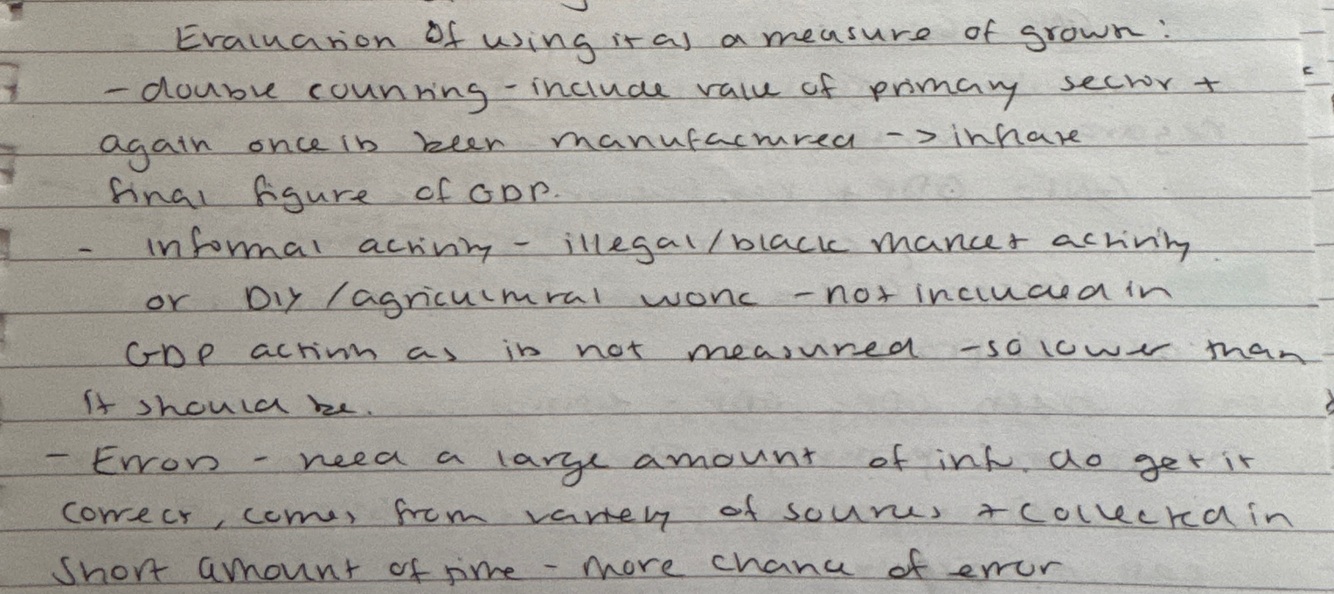 Evaluation of using it as a measure of growth:
- double counting - include value of primary sector +
again once its been manufactured -> inflate
final figure of GDP.
- informal activity - illegal/black market activity
or DIY/agricultural work - not included in
GDP activity as its not measured - so lower than
it should be.
- Errors - need a large amount of inf. do get it
correct, comes from variety of sources + collected in
short amount of time - more chance of error